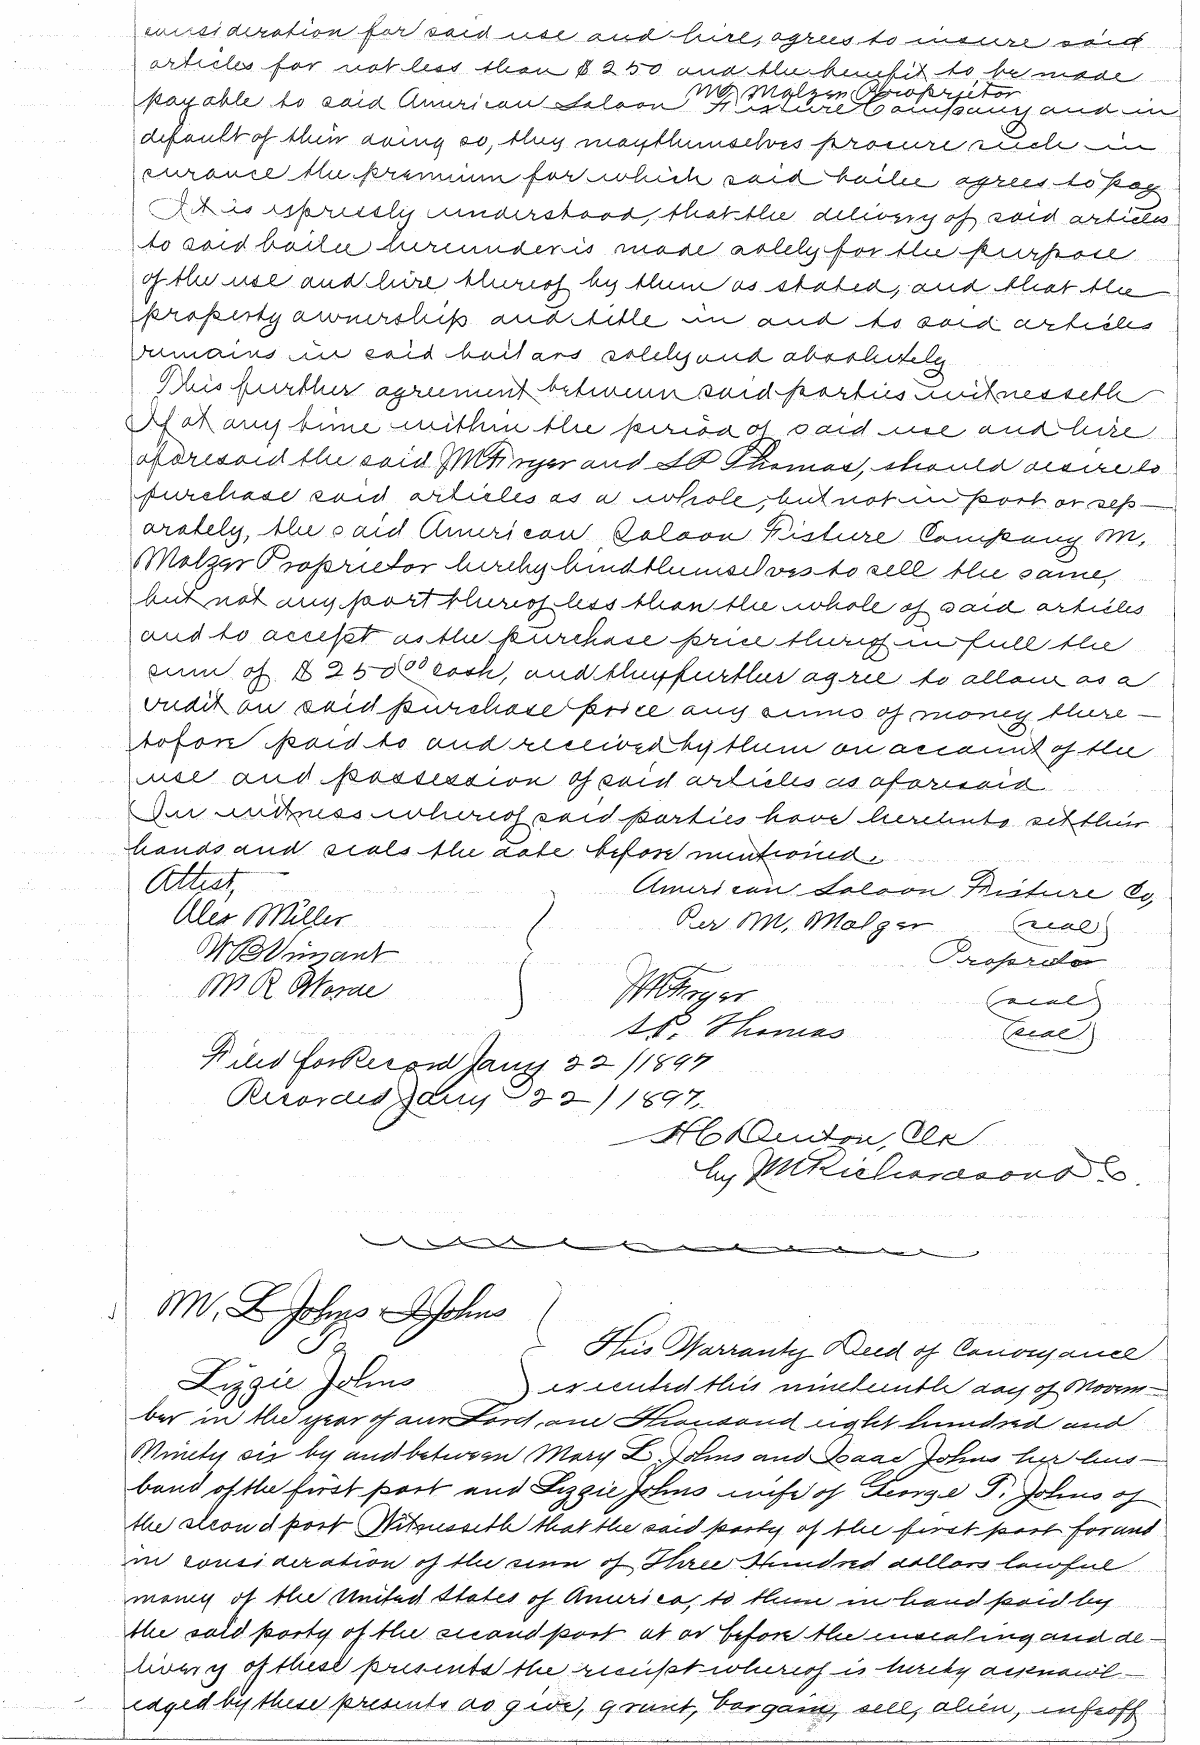 consideration for said use and hire, agrees to insure said
articles for not less than $250 and the benefit to be made
M. Malzer Proprietor
payable to said American Saloon Fixture Company and in
default of their doing so, they may themselves procure such in
surance the premium for which said bailee agrees to pay
It is expressly understood, that the delivery of said articles
to said bailee hereunder is made solely for the purpose
of the use and hire thereof by them as stated, and that the
property ownership and title in and to said articles
remains in said bailors solely and absolutely
This further agreement between said parties witnesseth
If at any time within the period of said use and hire
aforesaid the said JM Fryer and S P Thomas, should desire to
purchase said articles as a whole, but not in part or sep-
arately, the said American Saloon Fixture Company M,
Malzer Proprietor hereby bind themselves to sell the same,
but not any part thereof less than the whole of said articles
and to accept as the purchase price thereof in full the
sum of $250.00 cash, and they further agree to allow as a
credit on said purchase price any sums of money there-
tofore paid to and received by them on account of the
use and possession of said articles as aforesaid
In witness whereof said parties have hereunto set their
hands and seals the date before mentioned.
Attest, American Saloon Fixture Co,
Alex Miller Per M, Malzer (seal)
W B Vinzant Proprietor
M R JM Fryer (seal)
S.P. Thomas (seal)
Filed for Record Jany 22/1897
Recorded Jany 22/1897.
H C Denton, Clk
by JM Richardson D C.
M, L Johns & I Johns
To This Warranty Deed of Conveyance
Lizzie Johns executed this nineteenth day of Novem-
ber in the year of our Lord, one Thousand eight hundred and
Ninety six by and between Mary L. Johns and Isaac Johns her hus-
band of the first part and Lizzie Johns wife of George T. Johns of
the second part Witnesseth that the said party of the first part for and
in consideration of the sum of Three Hundred dollars lawful
money of the United States of America, to them in hand paid by
the said party of the second part at or before the ensealing and de-
livery of these presents the receipt whereof is hereby acknowl-
edged by these presents do give, grant, bargain, sell, alien, enfeoff